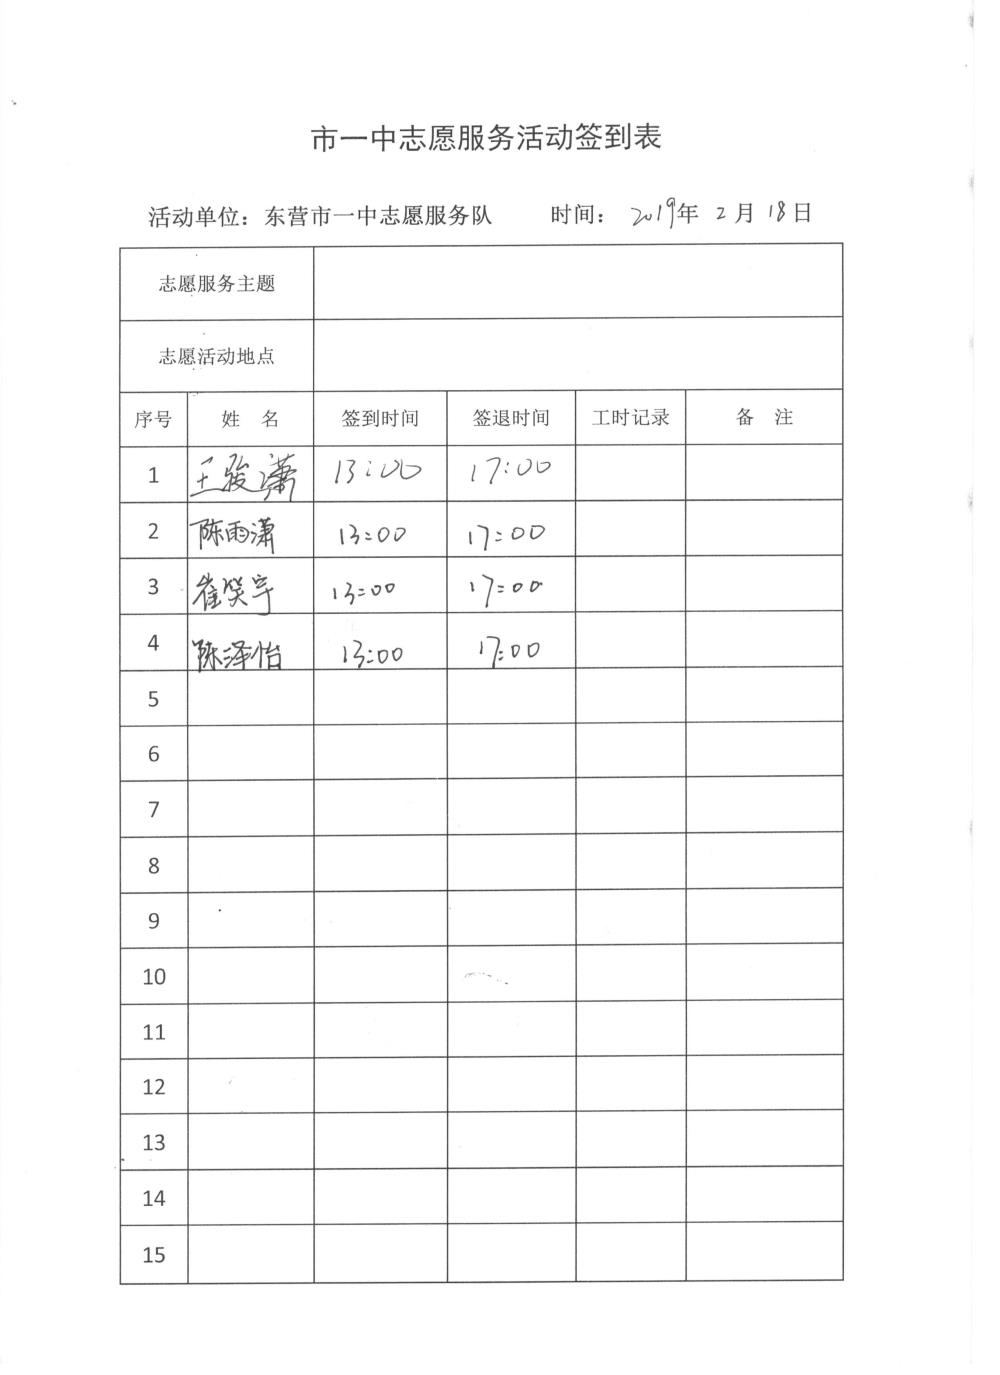 市一中志愿服务活动签到表
活动单位：东营市一中志愿服务队 时间：2019年 2月 18日
志愿服务主题
志愿活动地点
序号 姓 名 签到时间 签退时间 工时记录 备 注
1 王骏潇 13:00 17:00
2 陈雨潇 13:00 17:00
3 崔笑宇 13:00 17:00
4 陈泽怡 13:00 17:00
5
6
7
8
9
10
11
12
13
14
15